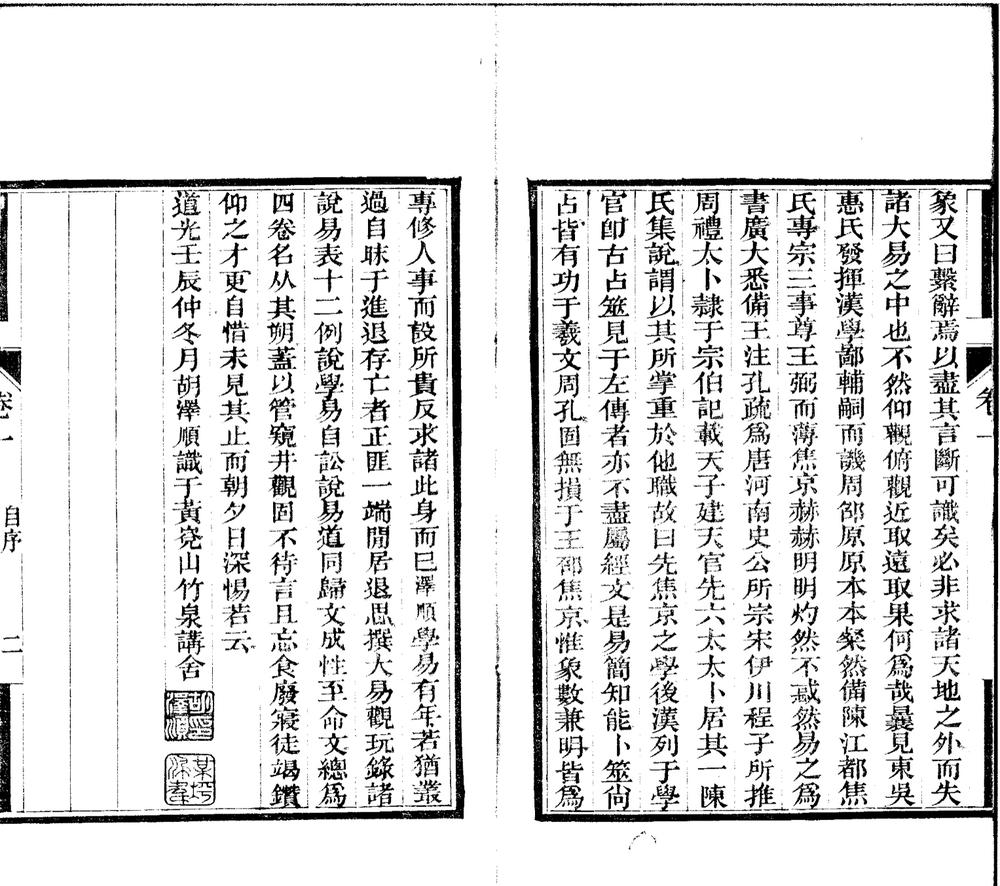 象又曰繫辭焉以盡其言斷可識矣必非求諸天地之外而失
諸大易之中也不然仰觀俯觀近取遠取果何爲哉曩見東吳
惠氏發揮漢學鄙輔嗣而譏周邵原原本本粲然備陳江都焦
氏專宗三事尊王弼而薄焦京赫赫明明灼然不惑然易之爲
書廣大悉備王注孔疏爲唐河南史公所宗宋伊川程子所推
周禮太卜隷于宗伯記載天子建天官先六太太卜居其一陳
氏集說謂以其所掌重於他職故曰先焦京之學後漢列于學
官卽古占筮見于左傳者亦不盡屬經文是易簡知能卜筮尙
占皆有功于羲文周孔固無損于王邵焦京惟象數兼明皆爲
專修人事而設所貴反求諸此身而已澤順學易有年若猶叢
過自昧于進退存亡者正匪一端閒居退思撰大易觀玩錄諸
說易表十二例說學易自訟說易道同歸文成性至命文總爲
四卷名从其朔蓋以管窺井觀固不待言且忘食廢寢徒竭鑽
仰之才更自惜未見其止而朝夕日深惕若云
道光壬辰仲冬月胡澤順識于黃堯山竹泉講舍
胡印澤順
卷一
自序
二
卷一